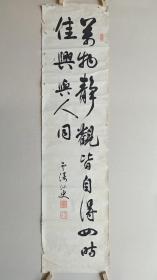 萬物静觀皆自得四時
佳興與人同